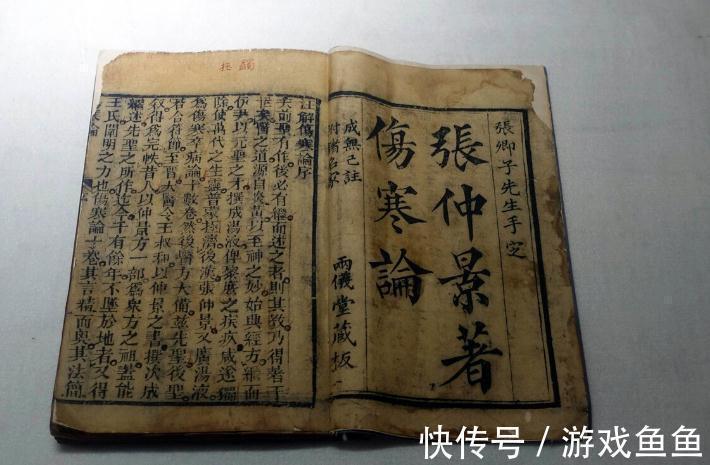 張卿子先生手定
張仲景著
傷寒論
成無己註
附諸名家
兩儀堂藏板
蠲 拯
注解傷寒論序
夫前聖有作後必有繼而述之者則其教乃得著于
世矣醫之道源自炎黃以至神之妙始興經方繼而
伊尹以元聖之才撰成湯液俾黎庶之疾疚咸遂蠲
除使萬代之生靈普蒙拯濟後漢張仲景又廣湯液
為傷寒卒病論十數卷然後醫方大備茲先聖後聖
若合符節至晉太醫令王叔和以仲景之書撰次成
敘得為完帙昔人以仲景方一部為衆方之祖蓋能
繼述先聖之所作迄今千有餘年不墜於地者又得
王氏闡明之力也傷寒論十卷其言精而奧其法簡
快传号 / 游戏鱼鱼